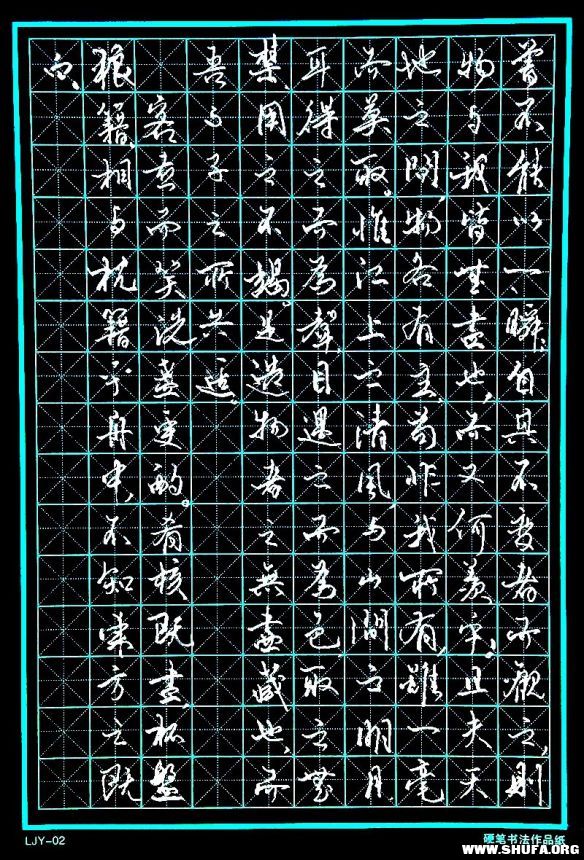 曾不能以一瞬，自其不變者而觀之，則
物与我皆無盡也，而又何羨乎！且夫天
地之間，物各有主，苟非我所有，雖一毫
而莫取。惟江上之清風，与山間之明月，
耳得之而為聲，目遇之而為色，取之無
禁，用之不竭。是造物者之無盡藏也，而
吾与子之所共適。
客喜而笑，洗盞更酌。肴核既盡，杯盤
狼籍。相与枕籍乎舟中，不知東方之既
白。
LJY-02
硬笔书法作品纸
WWW.SHUFA.ORG